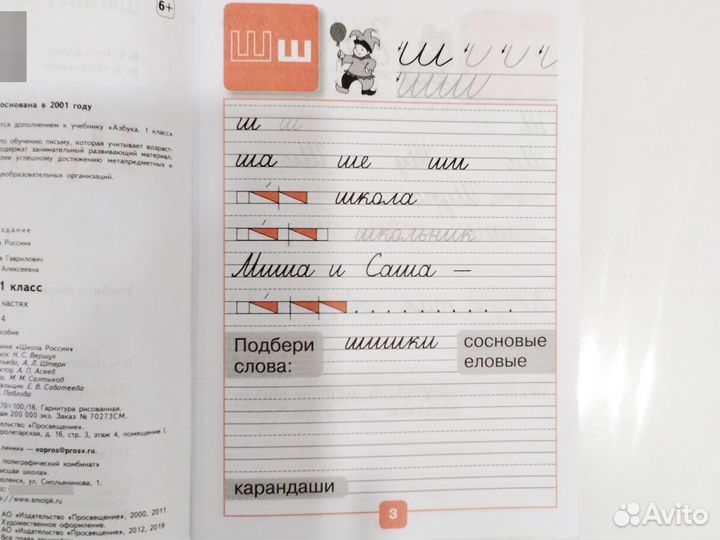 6+
основана в 2001 году
тся дополнением к учебнику «Азбука. 1 класс»
по обучению письму, которая учитывает возраст-
одержат занимательный развивающий материал,
лее успешному достижению метапредметных и
щеобразовательных организаций.
здание
России»
Гаврилович
Алексеевна
1 класс
частях
4
особие
ния «Школа России»
уск Н. С. Вершук
льёва, А. Л. Штерн
ктор А. П. Асеев
ва, М. М. Салтыков
альщик Е. В. Саватеева
. Павлова
70×100/16. Гарнитура рисованная.
таж 200 000 экз. Заказ № 70273СМ.
тельство «Просвещение».
ролетарская, д. 16, стр. 3, этаж 4, помещение I.
линии» — vopros@prosv.ru.
полиграфический комбинат»
ысшая школа».
оленск, ул. Смольянинова, 1.
://www.smolpk.ru
АО «Издательство «Просвещение», 2000, 2011
Художественное оформление.
АО «Издательство «Просвещение», 2012, 2019
Все права защищены
Ш ш
Ш
ш ш
ша ше ши
школа
школьник
Миша и Саша —
Подбери слова:
шишки
сосновые
еловые
карандаши
3
Avito